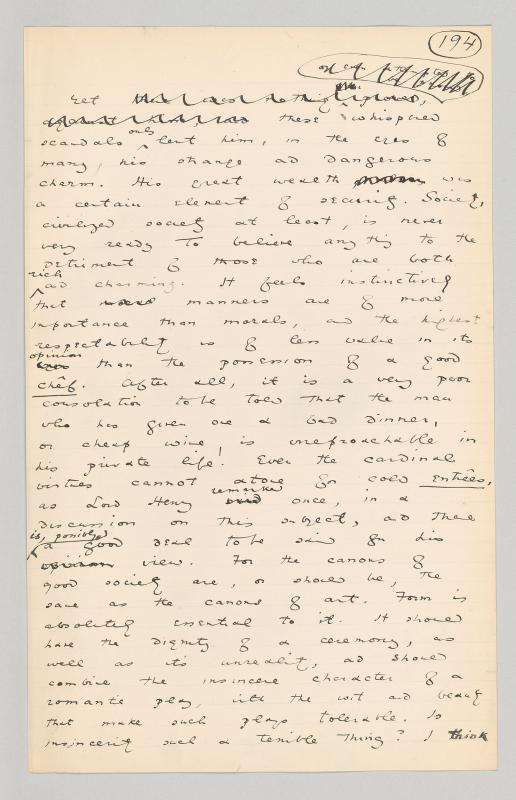 194
Yet these whispered
scandals only lent him, in the eyes of
many, his strange and dangerous
charm. His great wealth was
a certain element of security. Society,
civilized society at least, is never
very ready to believe anything to the
detriment of those who are both
rich
and charming. It feels instinctively
that manners are of more
importance than morals, and the highest
respectability is of less value in its
opinion
than the possession of a good
chêf. After all, it is a very poor
consolation to be told that the man
who has given one a bad dinner,
or cheap wine, is irreproachable in
his private life. Even the cardinal
virtues cannot atone for cold entrées,
as Lord Henry remarked once, in a
discussion on this subject, and there
is, possibly,
a good deal to be said for his
view. For the canons of
good society are, or should be, the
same as the canons of art. Form is
absolutely essential to it. It should
have the dignity of a ceremony, as
well as its unreality, and should
combine the insincere character of a
romantic play, with the wit and beauty
that make such plays tolerable. Is
insincerity such a terrible thing? I think